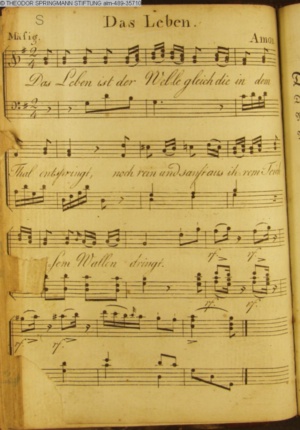 © THEODOR SPRINGMANN STIFTUNG
S
Das Leben.
Mäßig. Amon
Das Leben ist der Welle gleich die in dem
Thal entspringt, noch rein und sanft aus ih-rem
Wallen dringt.